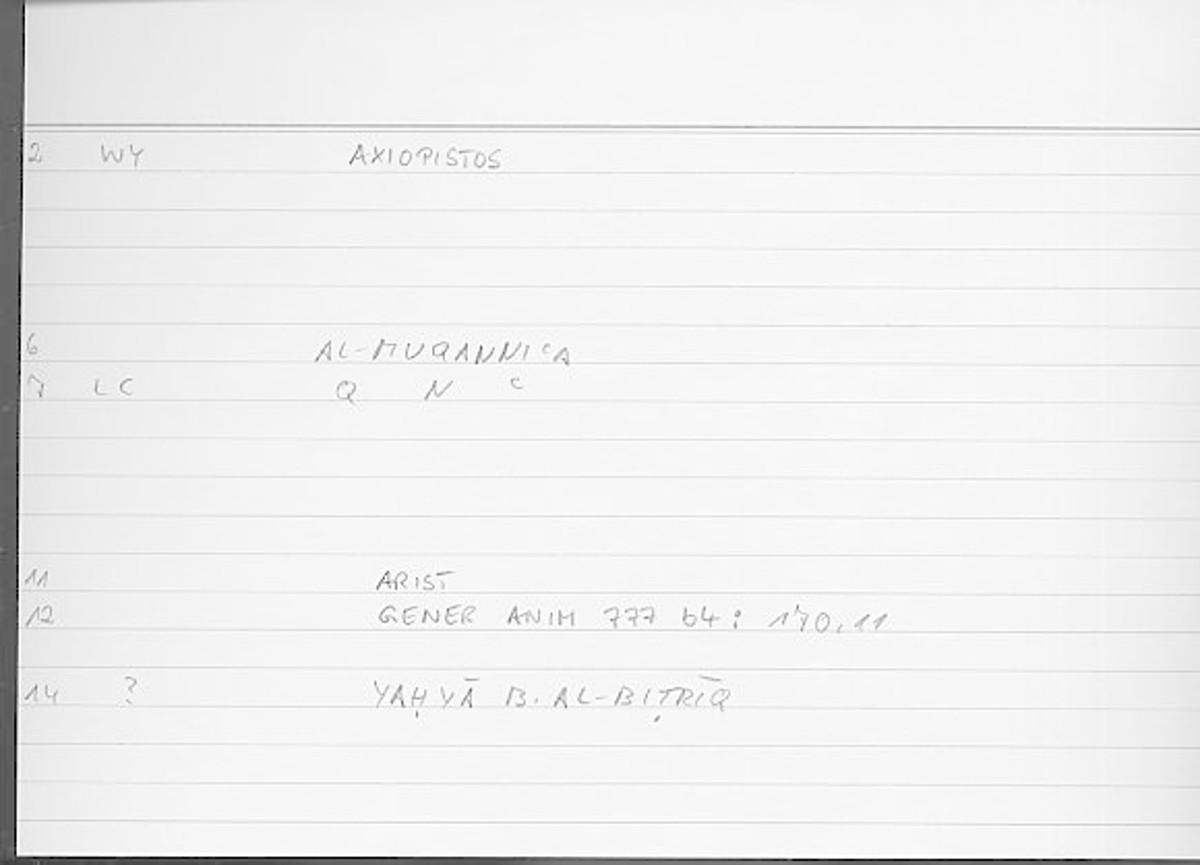 2 WY AXIOPISTOS
6 AL-MUQANNIʿA
7 LC Q N ʿ
11 ARIST
12 GENER ANIM 777 b4: 170,11
14 ? YAḤYĀ B. AL-BIṬRĪQ